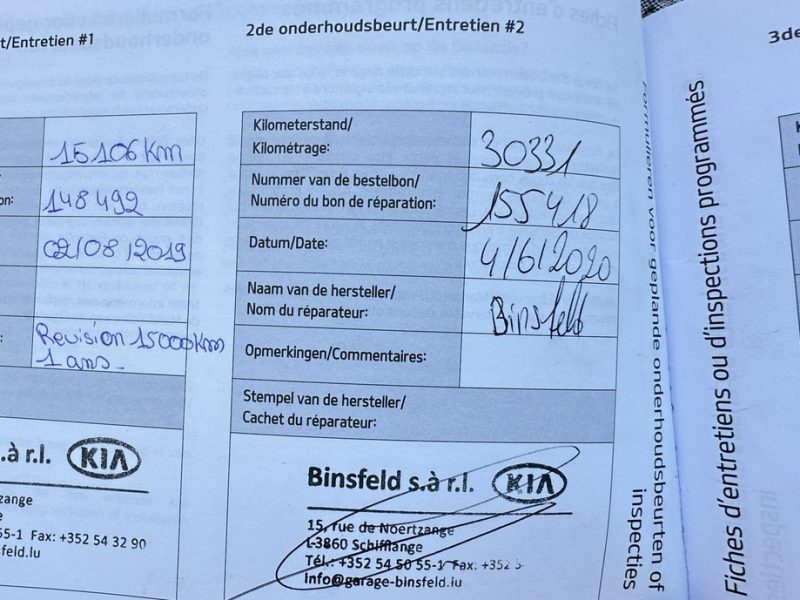 t/Entretien #1
15106 Km
148492
on:
02/08/2019
Revision 15000Km
1 ans.
.à r.l. KIA
tzange
55-1 Fax: +352 54 32 90
sfeld.lu
2de onderhoudsbeurt/Entretien #2
Kilometerstand/
Kilométrage:
30331
Nummer van de bestelbon/
Numéro du bon de réparation:
155418
Datum/Date:
4/6/2020
Naam van de hersteller/
Nom du réparateur:
Binsfeld
Opmerkingen/Commentaires:
Stempel van de hersteller/
Cachet du réparateur:
Binsfeld s.à r.l. KIA
15, rue de Noertzange
L-3860 Schifflange
Tél.: +352 54 50 55-1 Fax: +352 5
Info@garage-binsfeld.lu
Formulieren voor geplande onderhoudsbeurten of
inspecties
Fiches d'entretiens ou d'inspections programmés
3de